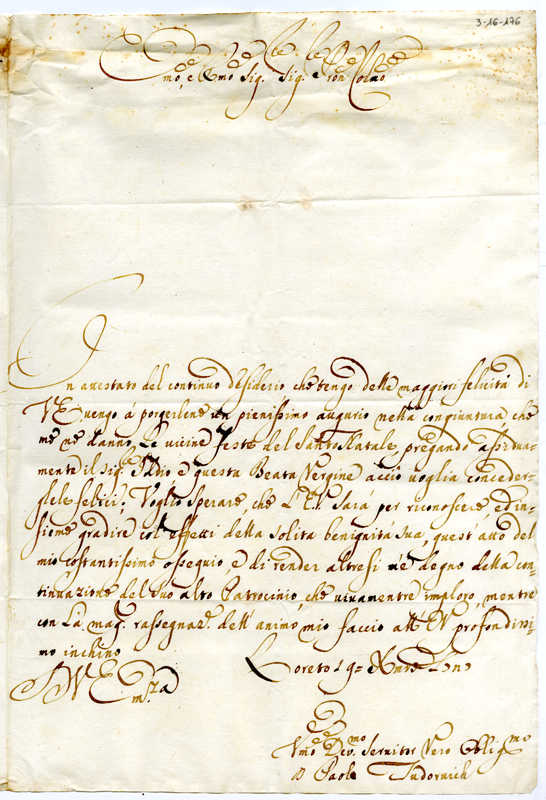 3-16-176
Emo, e Rmo Sig. Sig. e Pron Colmo
In attestato del continuo desiderio che tengo delle maggiori felicitá di
V.E. uengo á porgerlene un pienissimo augurio nella congiuntura che
me ne danno Le uicine feste del Santo Natale, pregando assidua-
mente il Sig.re Iddio e questa Beata Vergine acció uoglia conceder-
glele felici. Voglio sperare, che L'E.V. sará per riconoscere ed in-
sieme gradire col effetti della solita benignitá sua, quest'atto del
mio costantissimo ossequio, e di render altresi me degno della con-
tinuazione del suo alto Patrocinio, che uiuamentre imploro, mentre
con La mag. rassegnaz.e dell'animo mio faccio all'EV profondissi-
mo inchino
Loreto 19 Xmre
D V E m.za
Vmo Dev. Seruitor Vero Oblig.mo
D Paolo Tudorouich